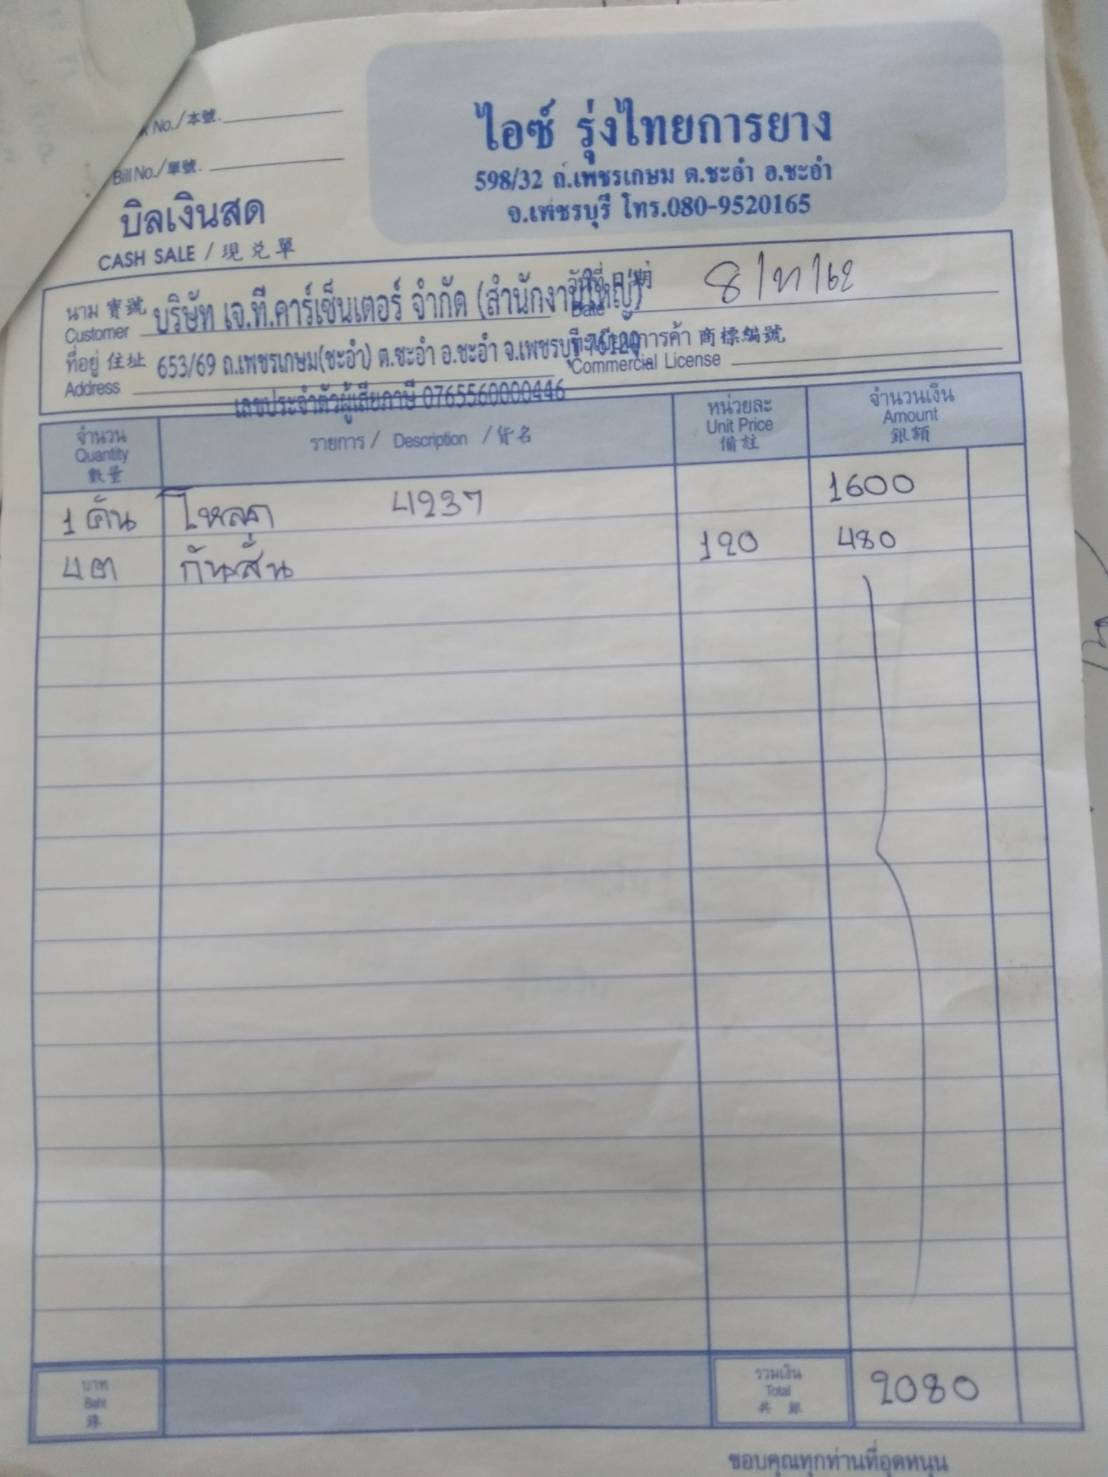 No./本號.
ไอซ์ รุ่งไทยการยาง
Bill No./單號.
598/32 ถ.เพชรเกษม ต.ชะอำ อ.ชะอำ
จ.เพชรบุรี โทร.080-9520165
บิลเงินสด
CASH SALE / 現兑單
นาม 寶號 บริษัท เจ.ที.คาร์เซ็นเตอร์ จำกัด (สำนักงานใหญ่)
Customer
Date
ที่อยู่ 住址 653/69 ถ.เพชรเกษม(ชะอำ) ต.ชะอำ อ.ชะอำ จ.เพชรบุรี 76120
การค้า 商標編號
Address
Commercial License
เลขประจำตัวผู้เสียภาษี 0765560000446
จำนวน รายการ / Description / 貨名 หน่วยละ จำนวนเงิน
Quantity Unit Price Amount
數量 備註 銀額
1 คัน 4237 1600
4 ตัว กันสั่น 120 480
บาท รวมเงิน
Baht Total 2080
ขอบคุณทุกท่านที่อุดหนุน